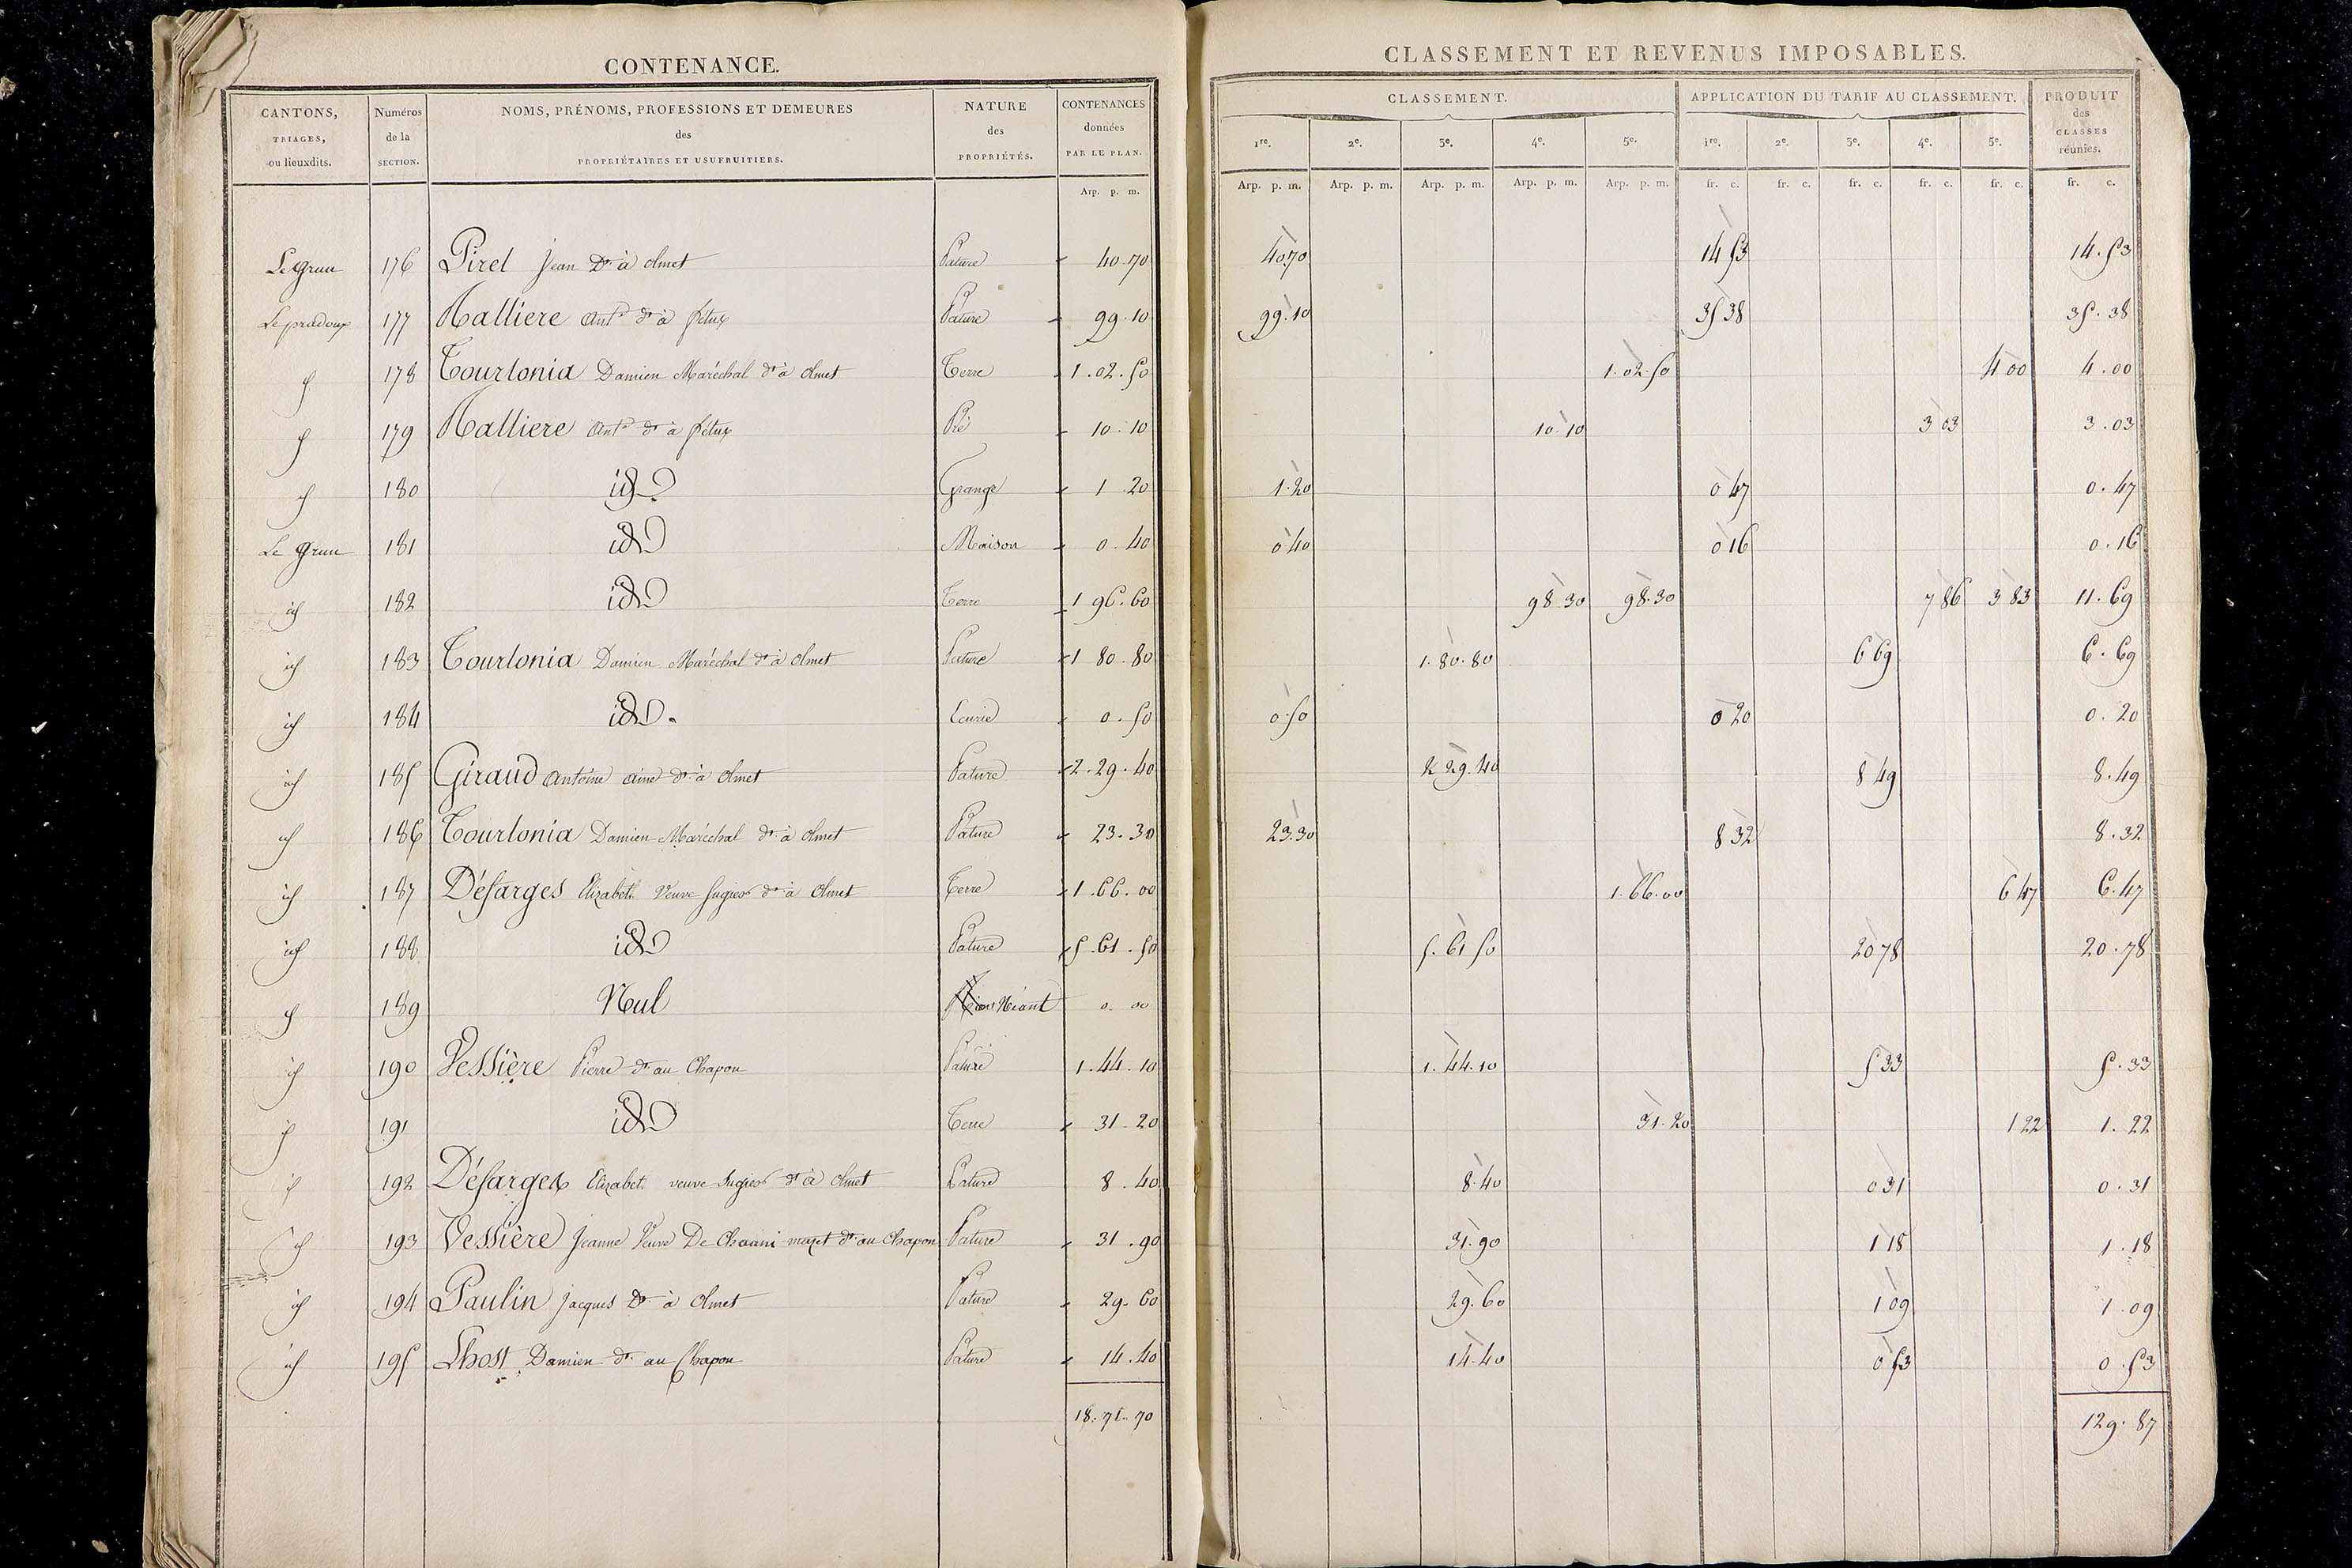 CONTENANCE.
CLASSEMENT ET REVENUS IMPOSABLES.
CANTONS, TRIAGES, ou lieuxdits. Numéros de la SECTION. NOMS, PRÉNOMS, PROFESSIONS ET DEMEURES des PROPRIÉTAIRES ET USUFRUITIERS. NATURE des PROPRIÉTÉS. CONTENANCES données PAR LE PLAN. CLASSEMENT. APPLICATION DU TARIF AU CLASSEMENT. PRODUIT des CLASSES réunies.
1re. 2e. 3e. 4e. 5e. 1re. 2e. 3e. 4e. 5e.
Arp. p. m. Arp. p. m. Arp. p. m. Arp. p. m. Arp. p. m. Arp. p. m. fr. c. fr. c. fr. c. fr. c. fr. c. fr. c.
Le grun 176 Pirel Jean Dt à olmet Pature 40.70 40.70 14 53 14.53
Le pradoux 177 Malliere Ant.e dt à fétux Pature 99.10 99.10 35 38 35.38
id 178 Tourlonia Damien Maréchal dt à olmet Terre 1.02.50 1.02.50 4 00 4.00
id 179 Malliere Ant.e dt à fétux Pré 10.10 10.10 3 03 3.03
id 180 id Grange 1.20 1.20 0 47 0.47
Le grun 181 id Maison 0.40 0.40 0 16 0.16
id 182 id Terre 1 96.60 98 30 98.30 7 86 3 83 11.69
id 183 Tourlonia Damien Maréchal dt à olmet Pature 1 80.80 1.80.80 6 69 6.69
id 184 id. Ecurie 0.50 0.50 0 20 0.20
id 185 Giraud antoine ainé dt à olmet Pature 2.29.40 2 29.40 8 49 8.49
id 186 Tourlonia Damien Maréchal dt à olmet Pature 23.30 23.30 8 32 8.32
id 187 Désarges Elizabeth Veuve Sugier dt à olmet Terre 1.66.00 1.66.00 6 47 6.47
id 188 id Pature 5.61.50 5.61 50 20 78 20.78
id 189 Nul Néant 0.00
id 190 Vessière Pierre dt au Chapon Pature 1.44.10 1.44.10 5 33 5.33
id 191 id Terre 31.20 31.20 1 22 1.22
id 192 Désarges Elizabet. veuve Sugier dt à olmet Pature 8.40 8.40 0 31 0.31
id 193 Vessière Jeanne Veuve De dt au Chapon Pature 31.90 31.90 1 18 1.18
id 194 Paulin jacques Dt à olmet Pature 29.60 29.60 1 09 1.09
id 195 Lhost Damien dt au Chapon Pature 14.40 14.40 0 53 0.53
18.71.70 129.87